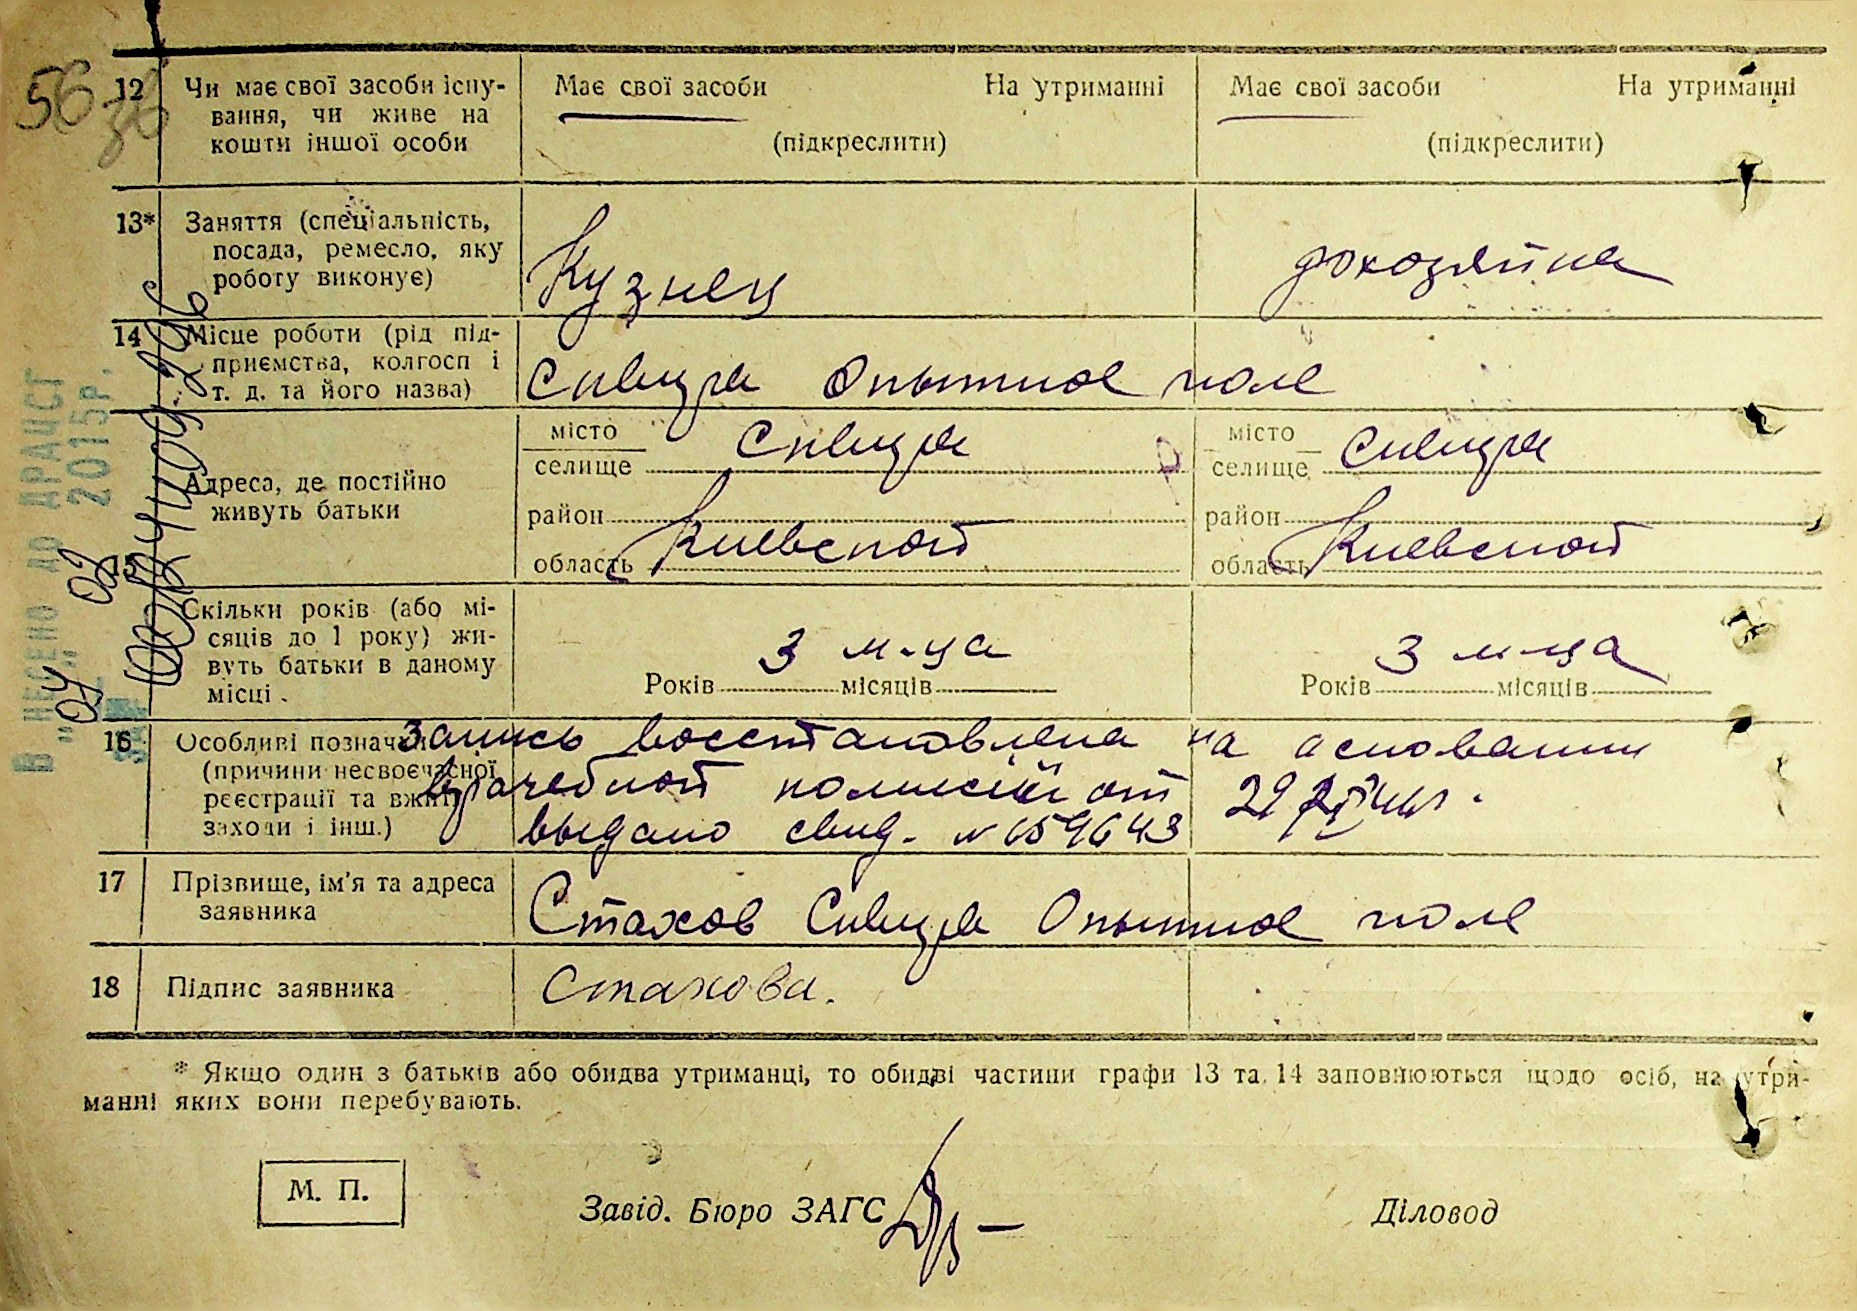 56 зв
12 Чи має свої засоби існу- Має свої засоби На утриманні Має свої засоби На утриманні
вання, чи живе на
кошти іншої особи (підкреслити) (підкреслити)
13* Заняття (спеціальність,
посада, ремесло, яку Кузнец
роботу виконує)
14 Місце роботи (рід під-
приємства, колгосп і
т. д. та його назва) Сквира Опытное поле
місто Сквира місто Сквира
селище селище
15 Адреса, де постійно
живуть батьки район район
область Киевской область Киевской
Скільки років (або мі-
сяців до 1 року) жи- 3 м-ца 3 м-ца
вуть батьки в даному
місці. Років місяців Років місяців
16 Особливі позначки Запись восстановлена на основании
(причини несвоєчасної врачебной комисии от 29
реєстрації та вжиті
заходи і інш.) выдано свид. № 659643
17 Прізвище, ім'я та адреса
заявника Стахов Сквира Опытное поле
18 Підпис заявника Стахова.
* Якщо один з батьків або обидва утриманці, то обидві частини графи 13 та 14 заповнюються щодо осіб, на утри-
манні яких вони перебувають.
М. П. Завід. Бюро ЗАГС Діловод
Внесено до ДРАЦСГ
"04" 03 2015р.